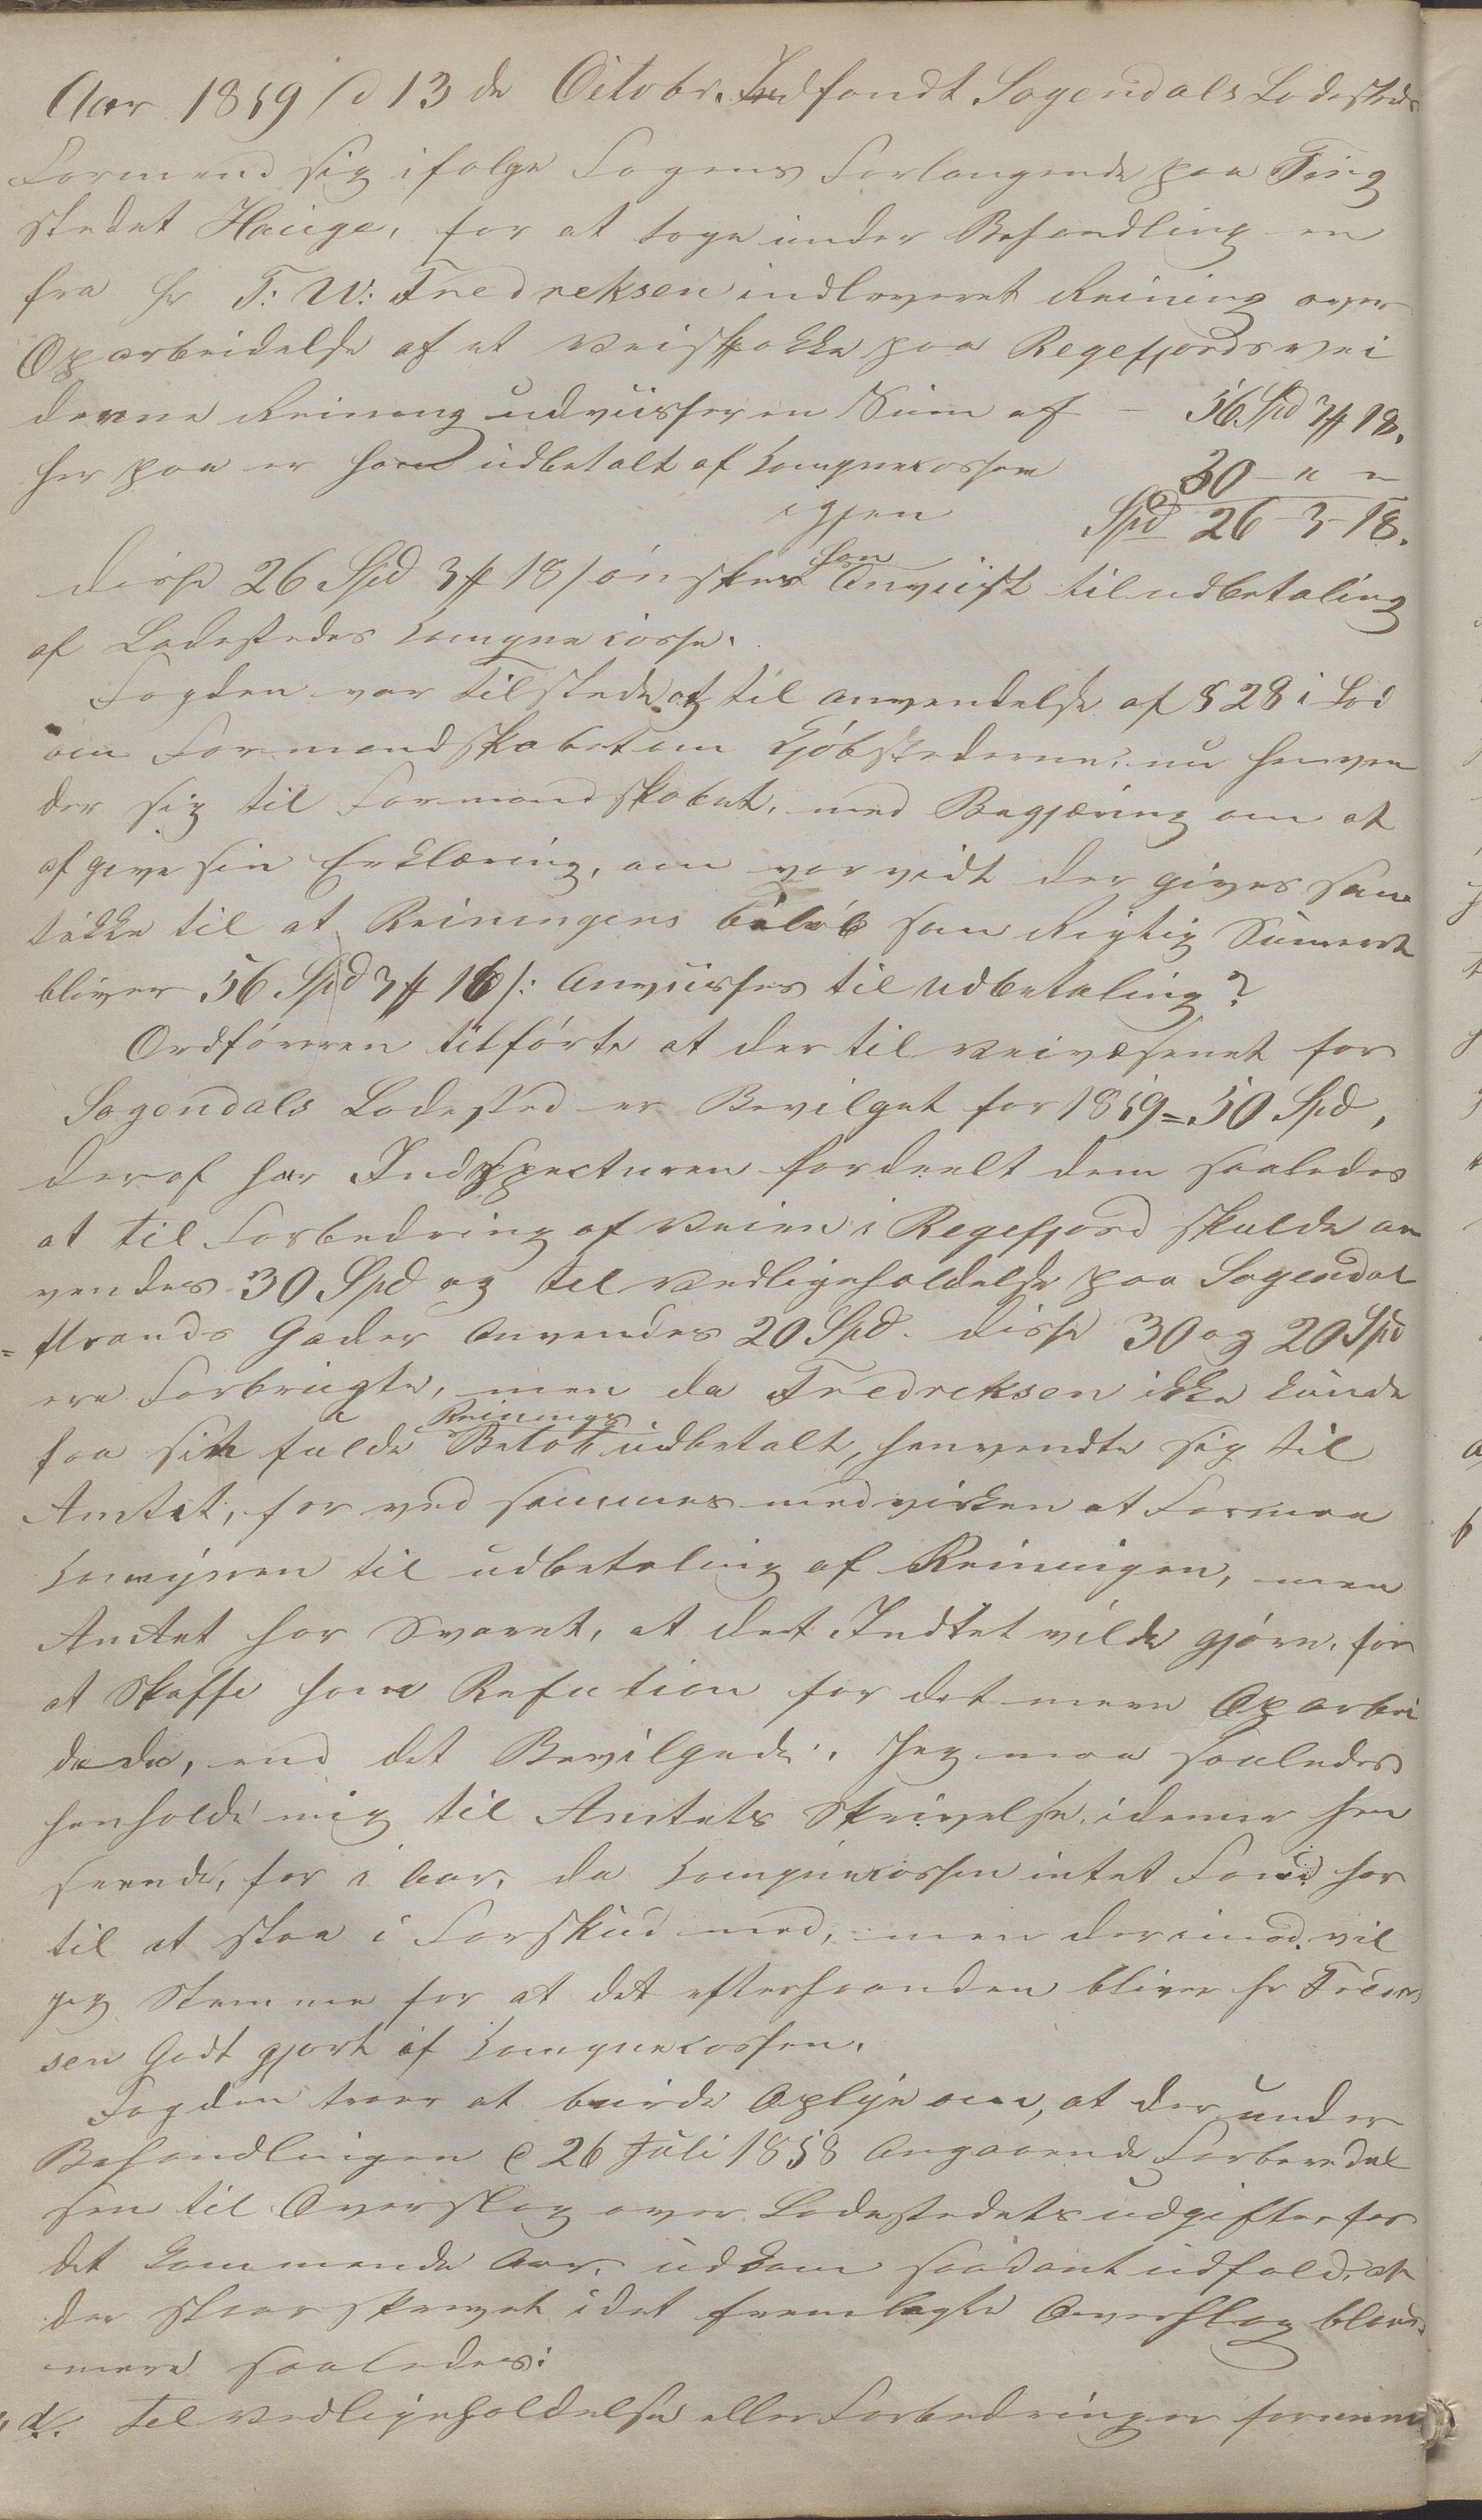 Aar 1859 d 13 de Octobr. Indfandt Sogendals Ladesteds
Formend sig ifølge Fogens Forlangende paa Ting
stedet Hauge, for at tage under Behandling en
fra hr T: W: Fredreksen indleveret Reining over
Oparbeidelse af et Veistykke paa Regefjords vei
denne Reining udviisser en Sum af - 56 Spd 3 # 18.
her paa er ham udbetalt af Comgnecassen 30 - " "
igjen Spd 26 - 3 - 18.
disse 26 Spd 3 # 18 / ønsker han Anviist til udbetaling
af Ladestedes Comgnecasse.
Fogden var tilstede og til anvendelse af § 28 i Lov
om Formandskabet om Kjøbstederne, nu henven
der sig til Formandskabet, med Begjæring om at
afgive sin Erklæring, om vorvidt der gives sam
tøkke til at Reiningens beløb som Rigtig Sumeret
bliver 56 Spd 3 # 18 /: Anviisses til Udbetaling?
Ordføreren tilførte at der til Veivæsenet for
Sogendals Ladested er Bevilget for 1859 = 50 Spd,
deraf har Indspecturen fordeelt dem saaledes
at til Forbedring af Veien i Regefjord skulde an
vendes 30 Spd og til Vedligeholdelse paa Sogendal
= strands Gader Anvendes 20 Spd. disse 30 og 20 Spd
ere Forbrugte, men da Fredreksen ikke kunde
faa sit fulde Reinings Beløb udbetalt, henvendte sig til
Amtet, for ved sammes medvirken at Formaa
Comynen til udbetaling af Reiningen, men
Amtet har Svaret, at det Indtet vilde gjøre, for
at Skaffe ham Refution for det mere Oparbei
dede, end det Bevilgede. Jeg maa saaledes
henholde mig til Amtets Skrivelse, idenne hen
seende, for i Aar, da Comgnecassen intet Fond har
til at staa i Forskud med, men derimod vil
jeg Stemme for at det efterhaanden bliver hr Fredrek
sen Godt gjort af Comgnecassen.
Fogden troer at burde Oplyse om, at der under
Behandlingen d 26 Juli 1858 Angaaende Forberedel
sen til Overslag over Ladestedets udgifter for
det kommende Aar, udkom saadant udfald, at
der staar skrevet i det fremlagte Overslag bland
mere saaledes:
"d/. Til Vedligeholdelse eller Forbedringer